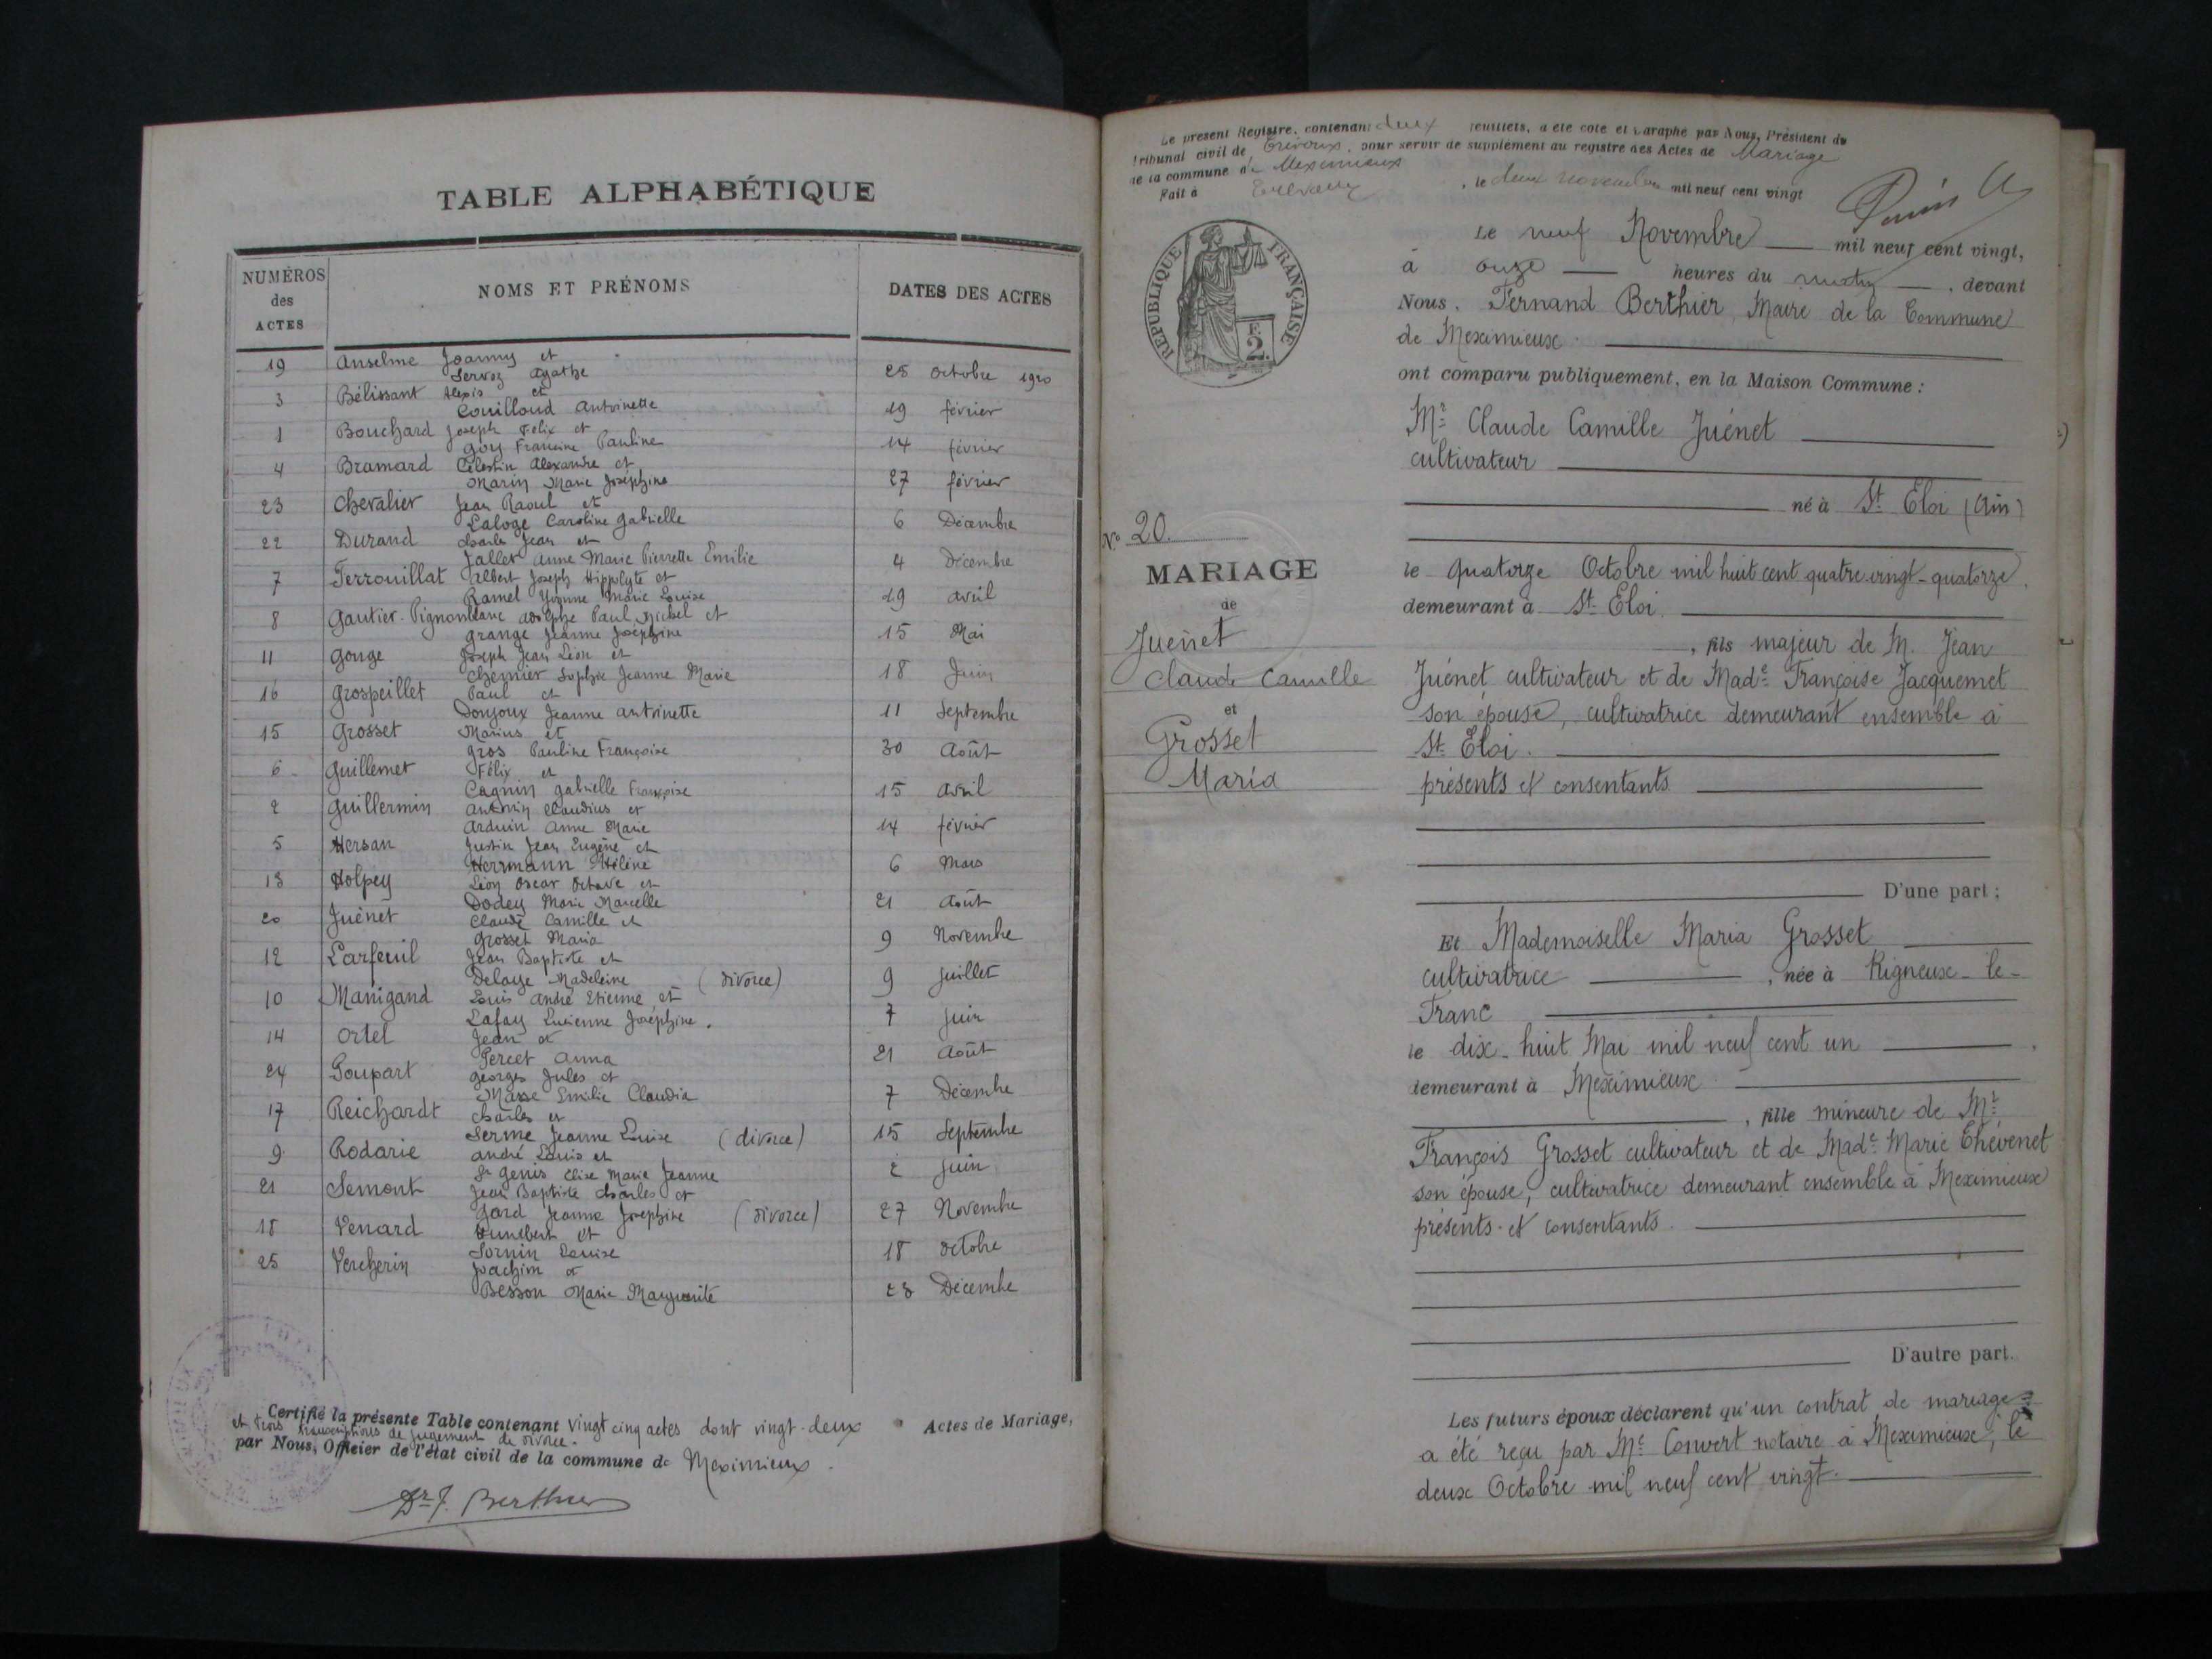 TABLE ALPHABÉTIQUE
NUMÉROS des ACTES NOMS ET PRÉNOMS DATES DES ACTES
19 Anselme Joanny et
Servoz Agathe 25 Octobre 1920
3 Bélissant Alexis et
Couilloud Antoinette 19 février
1 Bouchard Joseph Félix et
Goy Francine Pauline 14 février
4 Bramard Célestin Alexandre et
Marin Marie Joséphine 27 février
23 Chevalier Jean Raoul et
Laloge Caroline Gabrielle 6 Décembre
22 Durand Charle Jean et
Jallet Anne Marie Pierrette Emilie 4 Décembre
7 Ferrouillat Albert Joseph Hippolyte et
Ramel Yvonne Marie Louise 19 avril
8 Gautier-Pignonblanc Adolphe Paul Michel et
Grange Jeanne Joséphine 15 Mai
11 Gonge Joseph Jean Léon et
Chemier Sophie Jeanne Marie 18 Juin
16 Grospeillet Paul et
Donjoux Jeanne Antoinette 11 Septembre
15 Grosset Marius et
Gros Pauline Françoise 30 Août
6 Guillemet Félix et
Cagnin Gabrielle Françoise 15 avril
2 Guillermin Antonin Claudius et
Arduin Anne Marie 14 février
5 Hersan Justin Jean Eugène et
Herrmann Hélène 6 Mars
13 Holpey Léon Oscar Octave et
Dodey Marie Marcelle 21 Août
20 Juénet Claude Camille et
Grosset Maria 9 Novembre
12 Larfeuil Jean Baptiste et
Delaye Madeleine (divorce) 9 Juillet
10 Manigand Louis André Etienne et
Lafay Lucienne Joséphine. 7 juin
14 Ortel Jean et
Percet Anna 21 Août
24 Poupart Georges Jules et
Masse Emilie Claudia 7 Décembre
17 Reichardt Charles et
Serme Jeanne Louise (divorce) 15 Septembre
9 Rodarie André Louis et
St Genis Elise Marie Jeanne 2 juin
21 Semont Jean Baptiste Charles et
Gard Jeanne Josephine (divorce) 27 Novembre
18 Venard et
Sornin Louise 18 Octobre
25 Vercherin Joachim et
Besson Marie Marguerite 28 Décembre
Certifié la présente Table contenant vingt cinq actes dont vingt-deux Actes de Mariage,
et trois transcriptions de jugement de divorce.
par Nous, Officier de l'état civil de la commune de Meximieux.
Dr F. Berthier
Le présent Registre, contenant deux feuillets, a été coté et paraphé par Nous, Président du
Tribunal civil de Trévoux, pour servir de supplément au registre des Actes de Mariage
de la commune de Meximieux
Fait à Trévoux, le deux novembre mil neuf cent vingt
RÉPUBLIQUE FRANÇAISE
F. 2.
Le neuf Novembre mil neuf cent vingt,
à onze heures du matin, devant
Nous, Fernand Berthier, Maire de la Commune
de Meximieux.
ont comparu publiquement, en la Maison Commune :
Mr Claude Camille Juénet
cultivateur
né à St Eloi (Ain)
No 20
MARIAGE
de
Juénet
Claude Camille
et
Grosset
Maria
le quatorze Octobre mil huit cent quatre-vingt-quatorze.
demeurant à St Eloi.
, fils majeur de M. Jean
Juénet cultivateur et de Made Françoise Jacquemet
son épouse, cultivatrice demeurant ensemble à
St Eloi.
présents et consentants.
D'une part ;
Et Mademoiselle Maria Grosset
cultivatrice, née à Rigneux-le-
Franc
le dix-huit Mai mil neuf cent un
demeurant à Meximieux
, fille mineure de Mr
François Grosset cultivateur et de Made Marie Thévenet
son épouse, cultivatrice demeurant ensemble à Meximieux
présents et consentants.
D'autre part.
Les futurs époux déclarent qu'un contrat de mariage
a été reçu par Me Convert notaire à Meximieux, le
deux Octobre mil neuf cent vingt.